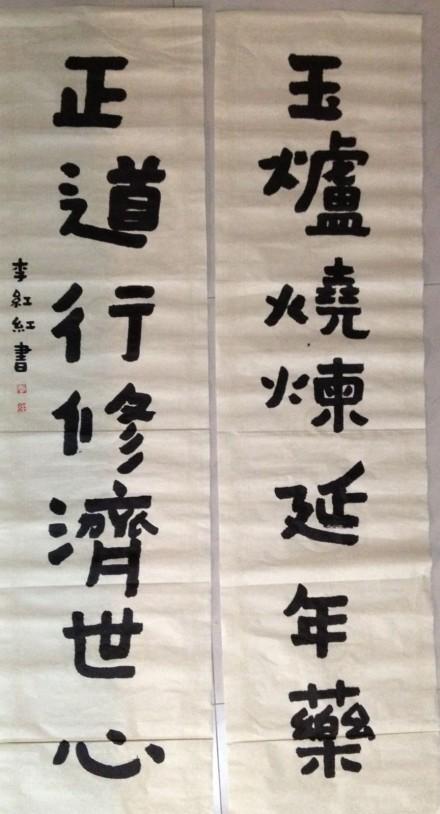 玉爐燒煉延年藥
正道行修濟世心
李紅紅書